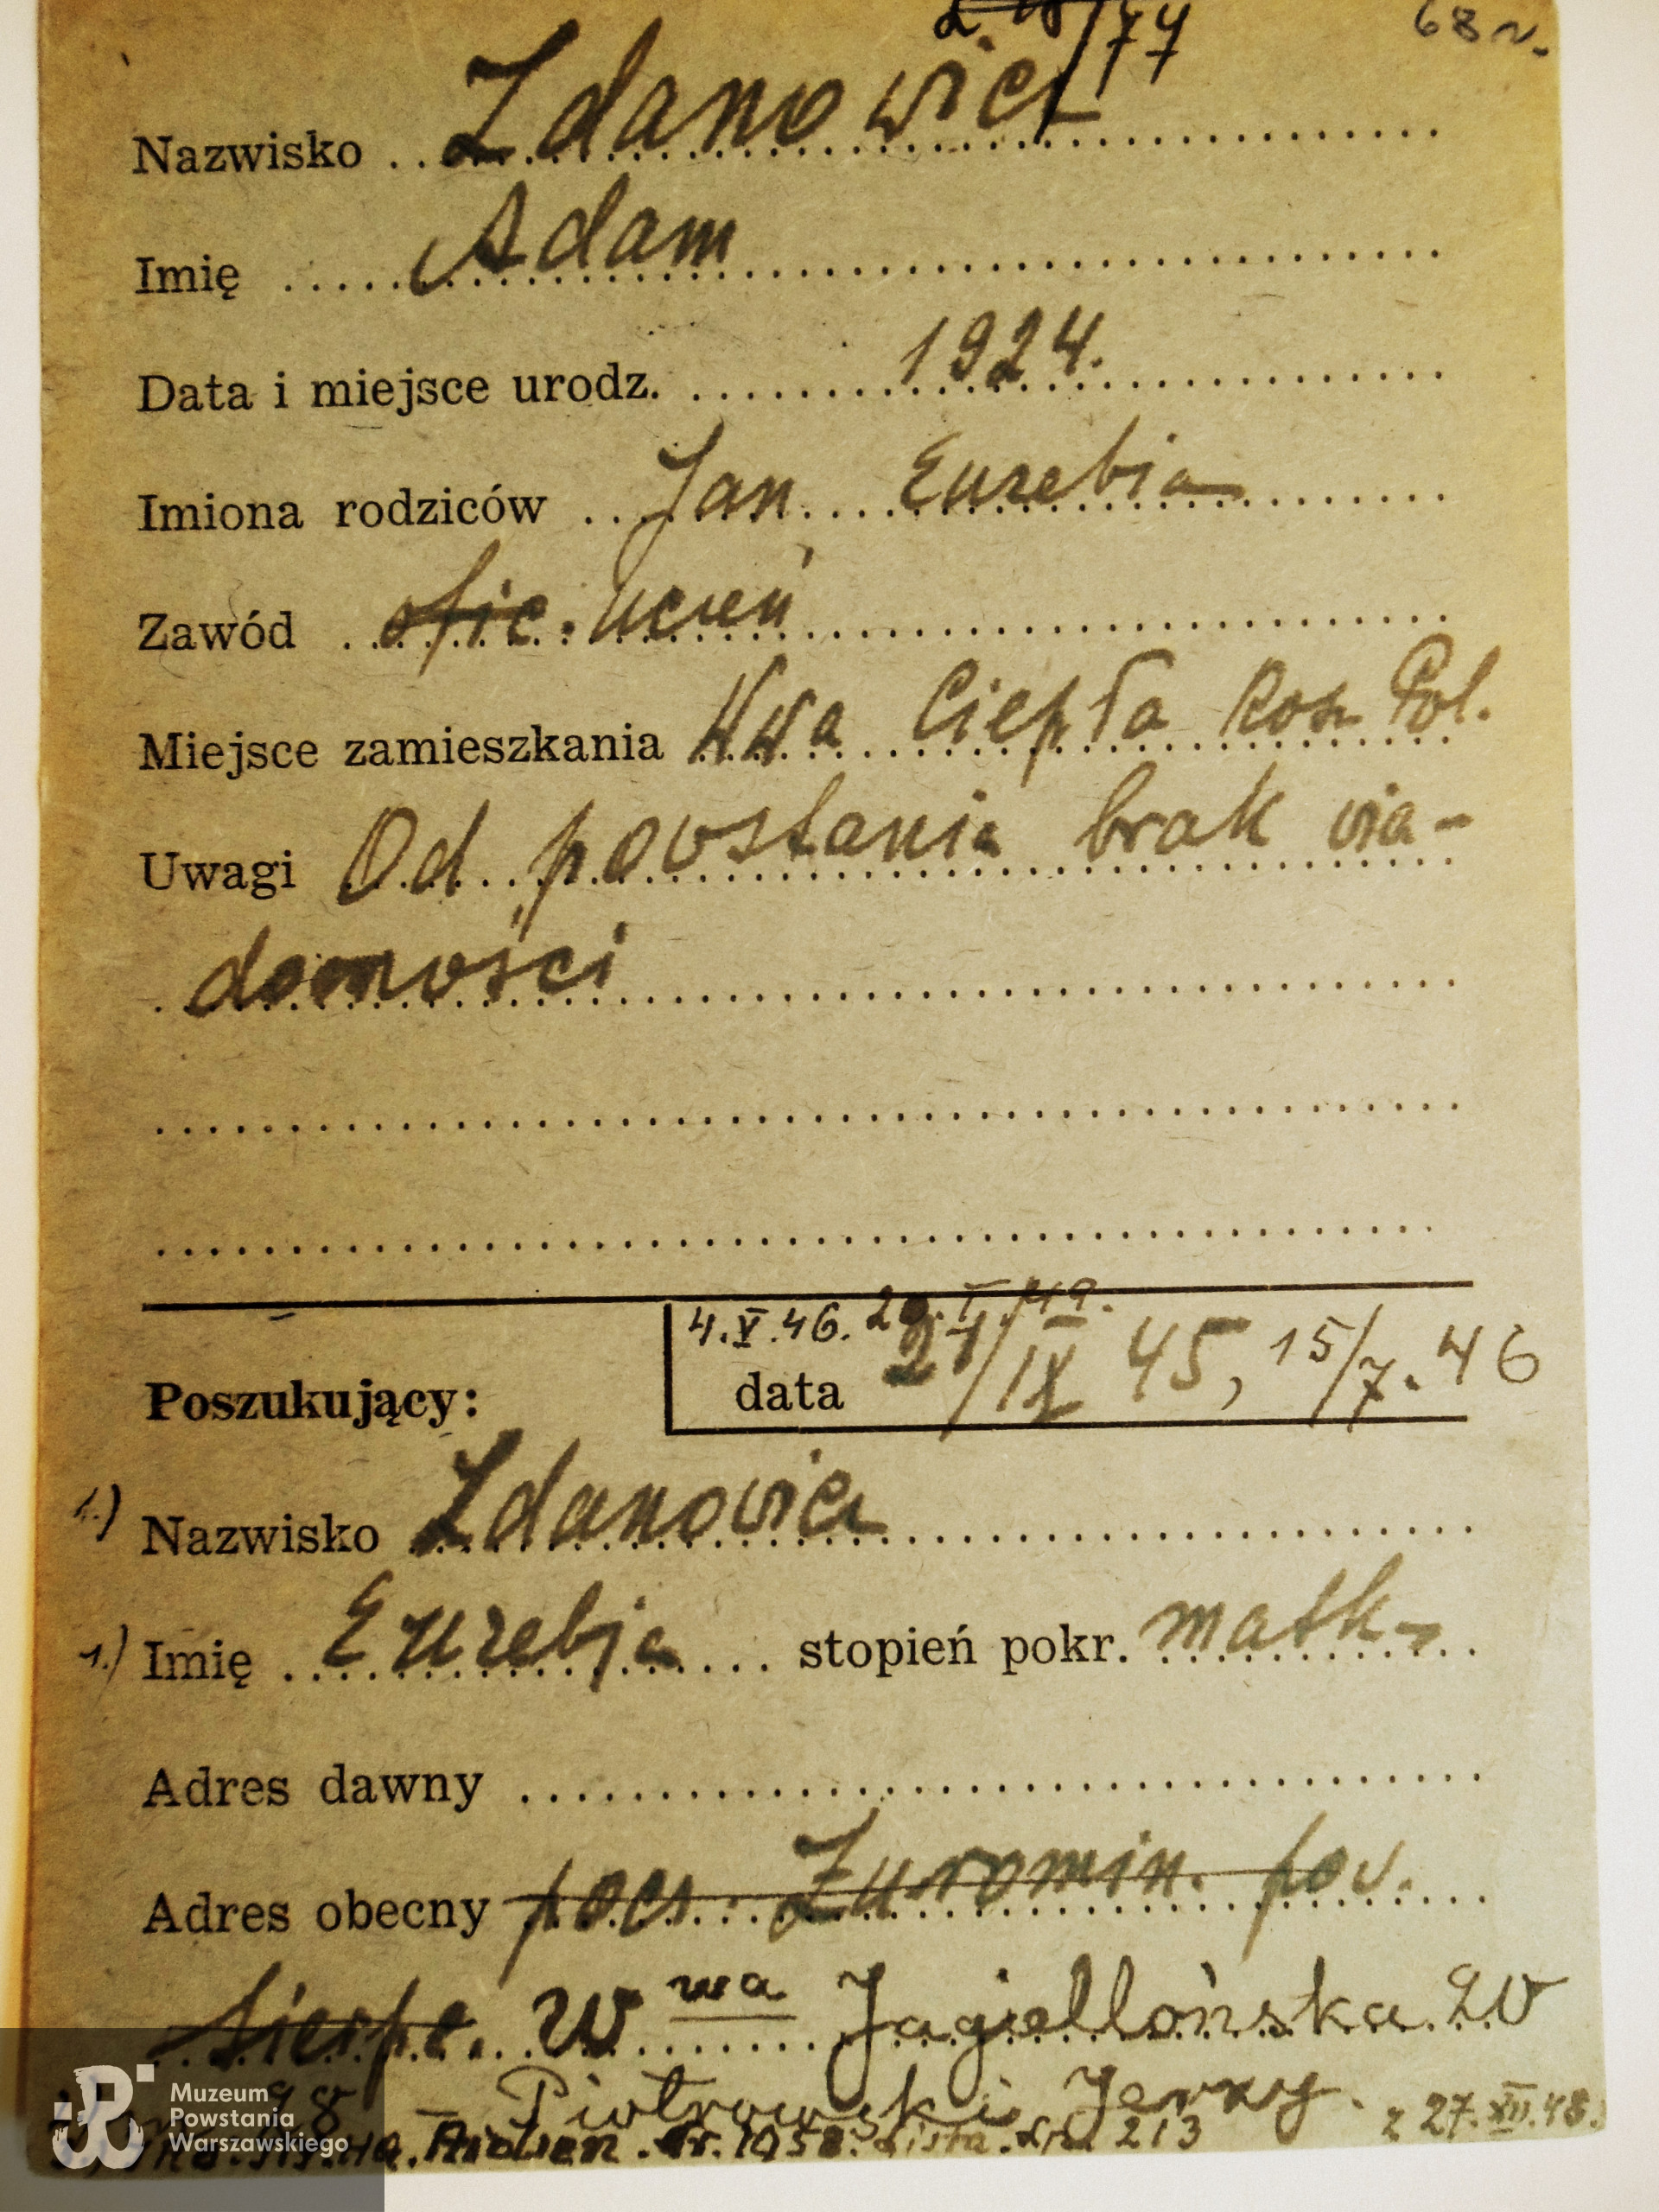 /77
68 r.
Nazwisko Zdanowicz
Imię Adam
Data i miejsce urodz. 1924.
Imiona rodziców Jan Euzebia
Zawód ofic. Uczeń
Miejsce zamieszkania Wwa Ciepła Kosz Pol.
Uwagi Od powstania brak wia-
domości
4.V.46. 20.I.49.
Poszukujący: data 21/IX 45, 15/7.46
1.) Nazwisko Zdanowicz
1.) Imię Euzebja stopień pokr. matka
Adres dawny
Adres obecny pocz. Żuromin. pow.
Sierpc. W wa Jagiellońska 20
m. 98 Piotrowski Jerzy.
Nr. 1958. Lista. Nr. 213 z 27.XII.48.
Muzeum
Powstania
Warszawskiego